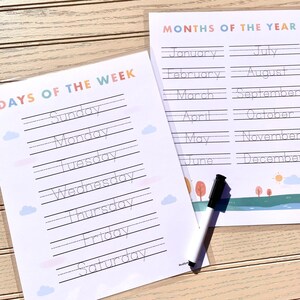 DAYS OF THE WEEK
Sunday
Monday
Tuesday
Wednesday
Thursday
Friday
Saturday
MONTHS OF THE YEAR
January
February
March
April
May
June
July
August
September
October
November
December